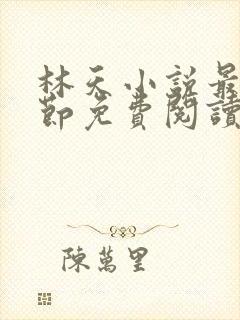 林天小说最
節免費閱讀
陳萬里